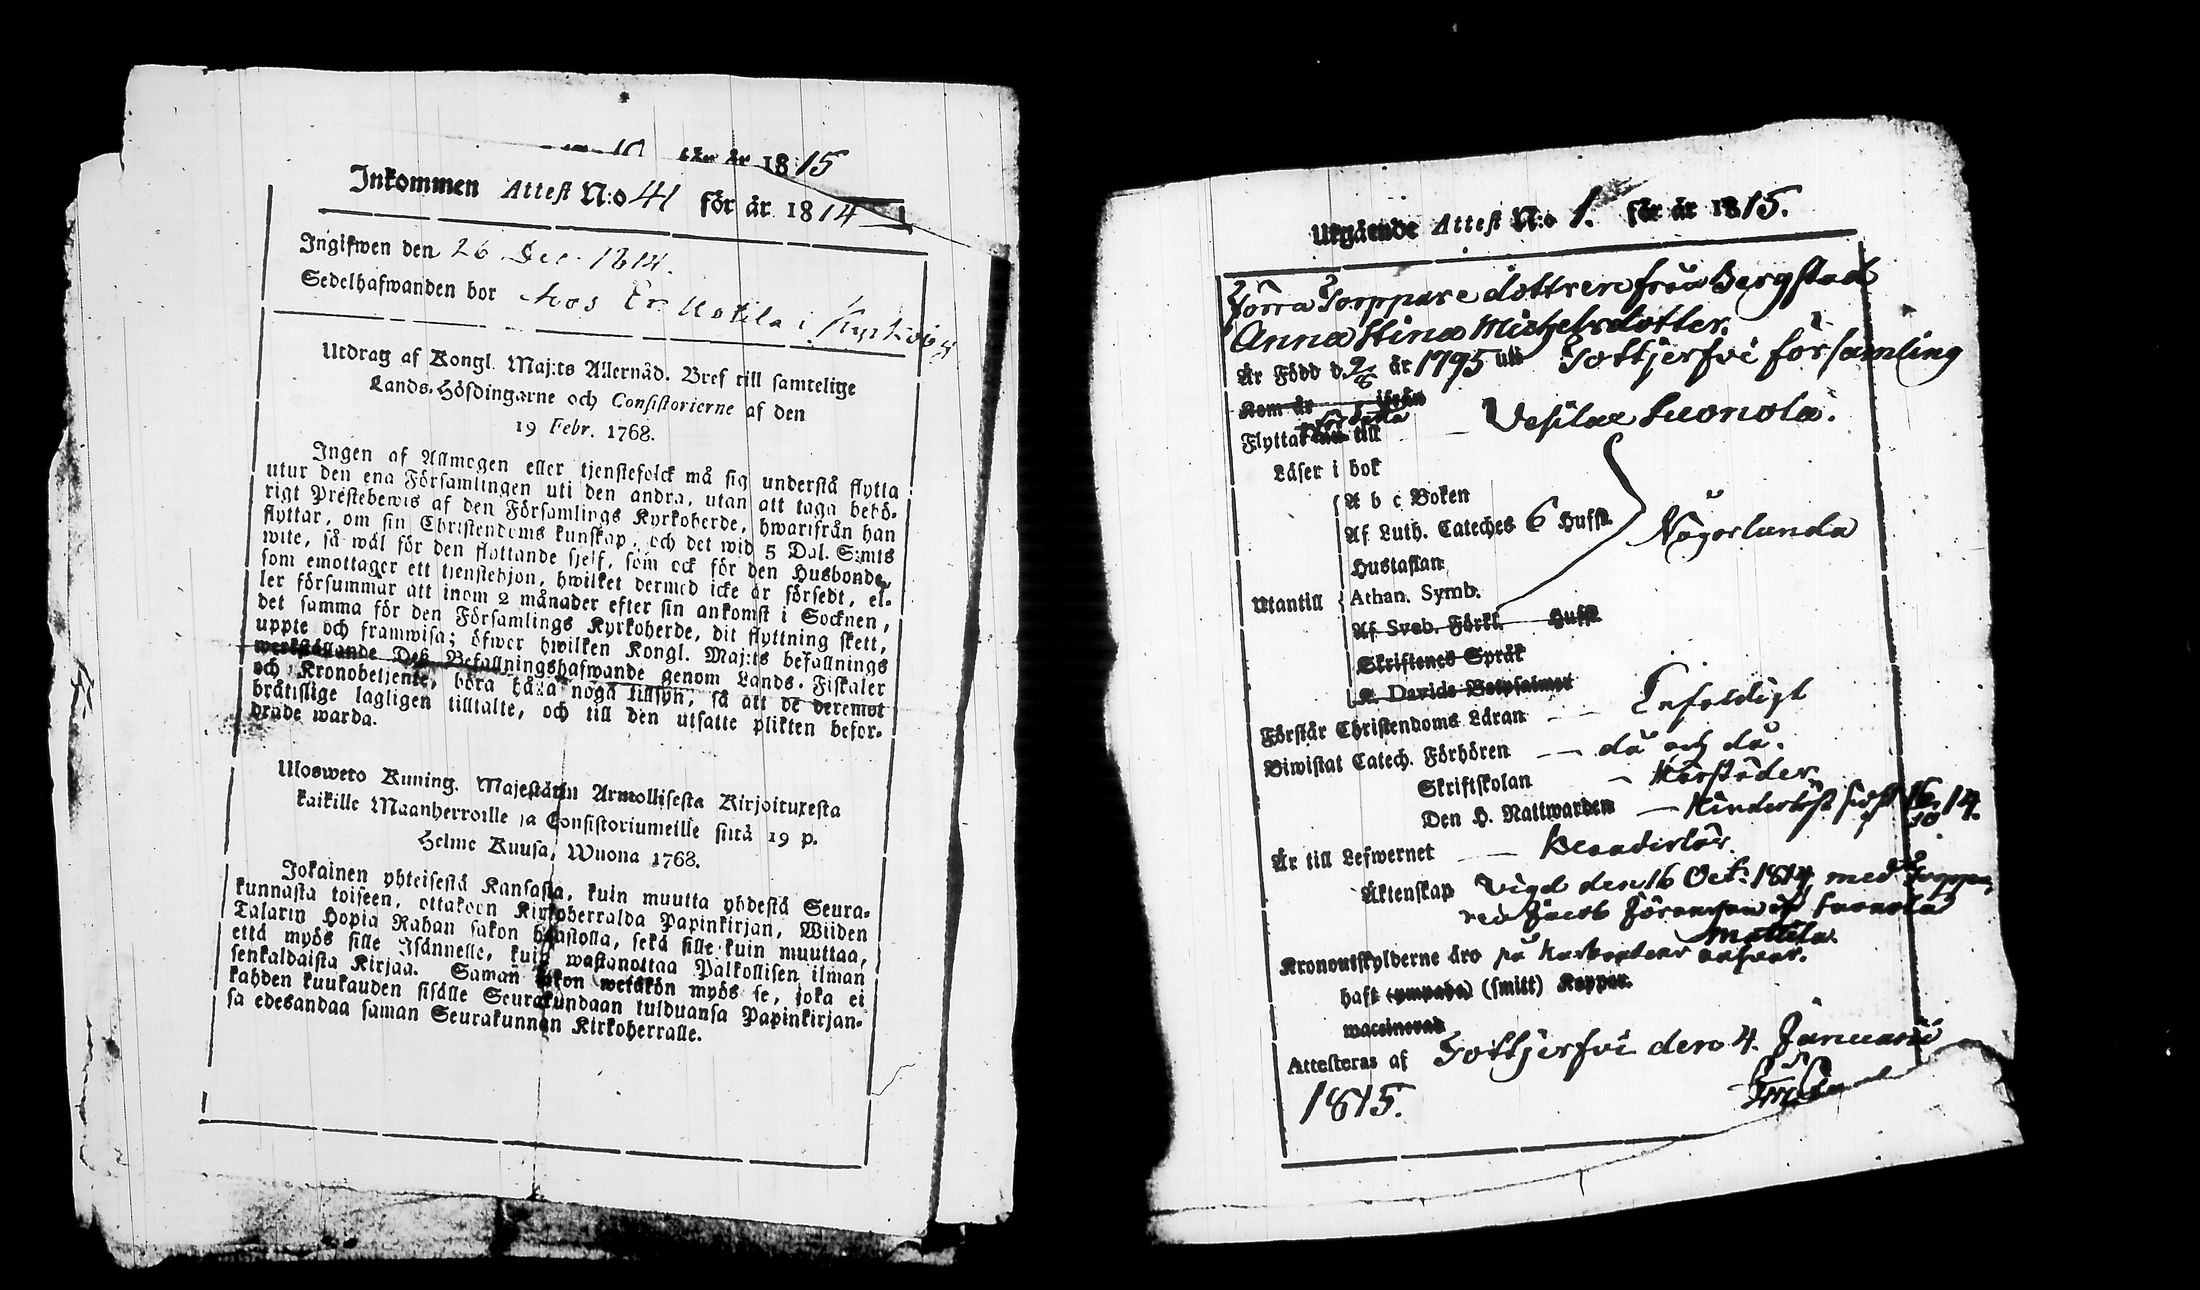 för år 1815
Inkommen Attest N:o 41 för år 1814
Ingifwen den 26 Dec. 1814.
Sedelhafwanden bor hos Er. Uotila i Kyrkoby
Utdrag af Kongl. Maj:ts Allernåd. Bref till samtelige
Lands-Höfdingarne och Consistorierne af den
19 Febr. 1768.
Ingen af Allmogen eller tjenstefolck må sig understå flytta
utur den ena Församlingen uti den andra, utan att taga behö-
rigt Prestebewis af den Församlings Kyrkoherde, hwarifrån han
flyttar, om sin Christendoms kunskap, och det wid 5 Dal. S:mts
wite, så wäl för den flyttande sjelf, som ock för den Husbonde,
som emottager ett tjenstehjon, hwilket dermed icke är försedt, el-
ler försummar att inom 2 månader efter sin ankomst i Socknen,
det samma för den Församlings Kyrkoherde, dit flyttning skett,
uppte och framwisa; öfwer hwilken Kongl. Maj:ts befallnings
werkställande Deß Befallningshafwande genom Lands-Fiskaler
och Kronobetjente, böra hafwa noga tillsyn, så att de deremot
brätslige lagligen tilltalte, och till den utsatte plikten befor-
drade warda.
Ulosweto Kuning. Majestätin Armollisesta Kirjoituxesta
kaikille Maanherroille ja Consistoriumeille siitä 19 p.
Helme Kuusa, Wuona 1768.
Jokainen yhteisestä Kansasta, kuin muutta yhdestä Seura-
kunnasta toiseen, ottakoon Kirkoherralda Papinkirjan, Wiiden
Talarin Hopia Rahan sakon haastolla, sekä sille kuin muuttaa,
että myös sille Isännelle, kuin wastanottaa Palkollisen ilman
senkaldaista Kirjaa. Saman sakon wetäkön myös se, joka ei
kahden kuukauden sisälle Seurakundaan tulduansa Papinkirjan-
sa edesandaa saman Seurakunnan Kirkoherralle.
Utgående Attest N:o 1. för år 1815.
Förra Torppare dottren från Bergstad
Anna Stina Michelsdotter.
Är Född d 2/6 år 1795 uti Tottjerfvi församling
Kom år ifrån
Flyttar till Vesilax Suonola.
Läser i bok
A b c Boken
Af Luth. Cateches 6 Hufst.
Hustaflan
Någorlunda
Utantill Athan. Symb.
Af Sveb. Förkl. Hufst.
Skriftenes Språk
K. Davids Botpsalmer
Förstår Christendoms Läran Enfaldigt
Biwistat Catech. Förhören då och då.
Skriftskolan
Den H. Nattwarden sidst 16/10 14.
Är till Lefwernet
Äktenskap Vigd den 16 Oct. 1814 med Torppa-
ren Jacob Göransson af Suonola
Mattila.
Kronoutskylderne äro på Husbondens answar.
haft (ympade) (smitt) Koppor.
waccinerad
Attesteras af Tottjerfvi den 4. Januarii
1815.